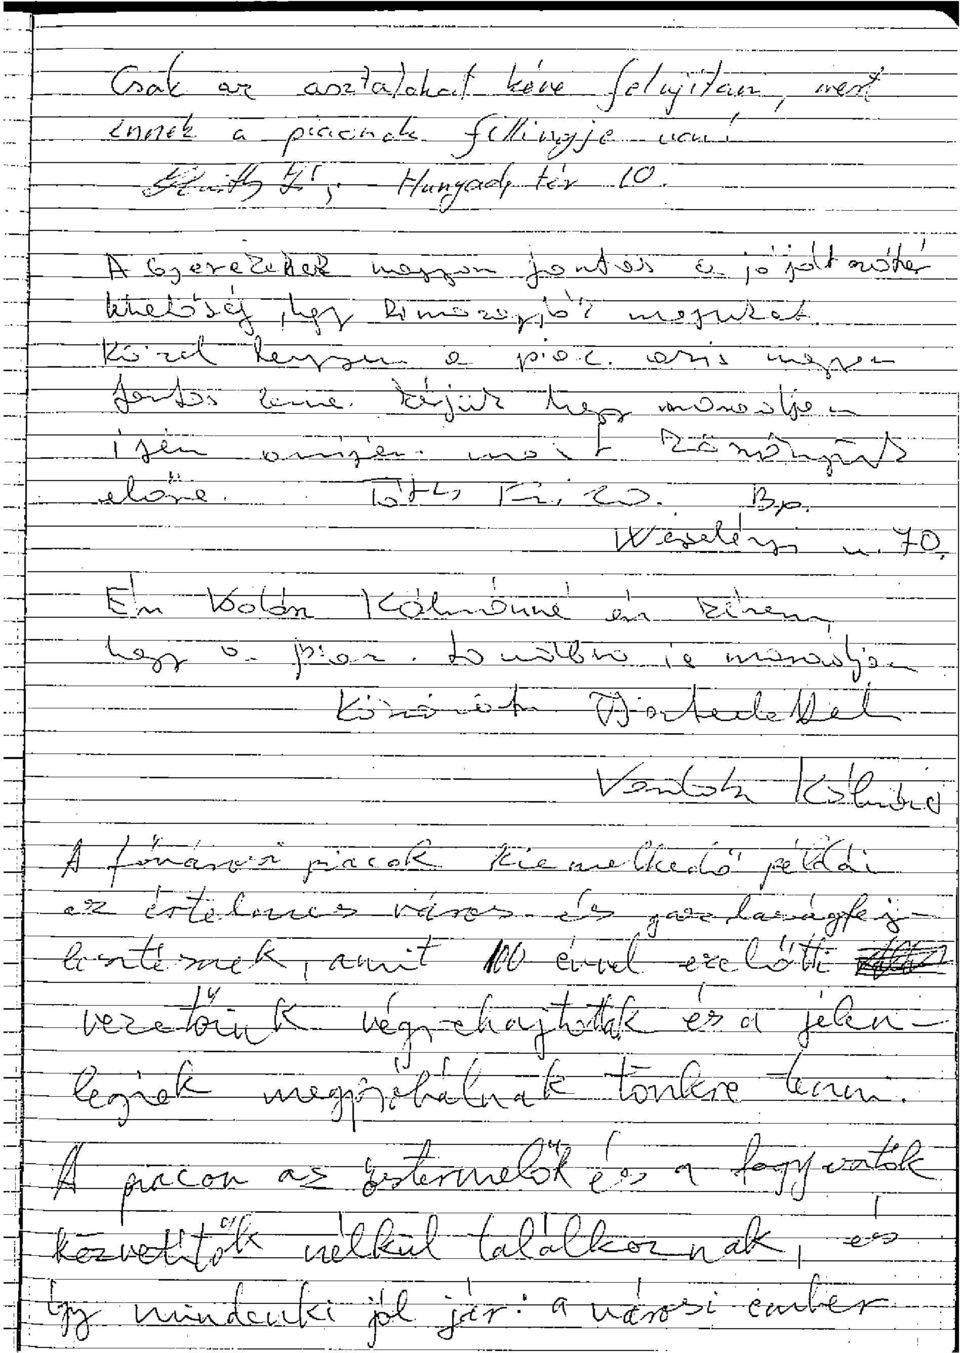 Csak az asztalokat kéne felújítan, mert
ennek a piacnak fíllingje van!
Hunyadi tér 10.
A gyerekeknek nagyon fontos a jó játszótér
hogy kimozogják magukat.
Közel legyen a piac. az is nagyon
fontos lenne. kérjük hogy maradjon
ijén amijen most Köszönjük
előre. Tóth Bp.
Weselényi u. 70.
Én Kálmánné én kérem,
hogy a piac továbbra is maradjon
Köszönöm Tisztelettel
Kálmáné
A fővárosi piacok kiemelkedő példái
az értelmes város- és gazdaságfej-
lesztésnek, amit 100 évvel ezelőtti
vezetőink végrehajtottak és a jelen-
legiek megpróbálnak tönkre tenni.
A piacon az őstermelők és a fogyasztók
közvetítők nélkül találkoznak, és
így mindenki jól jár: a városi ember